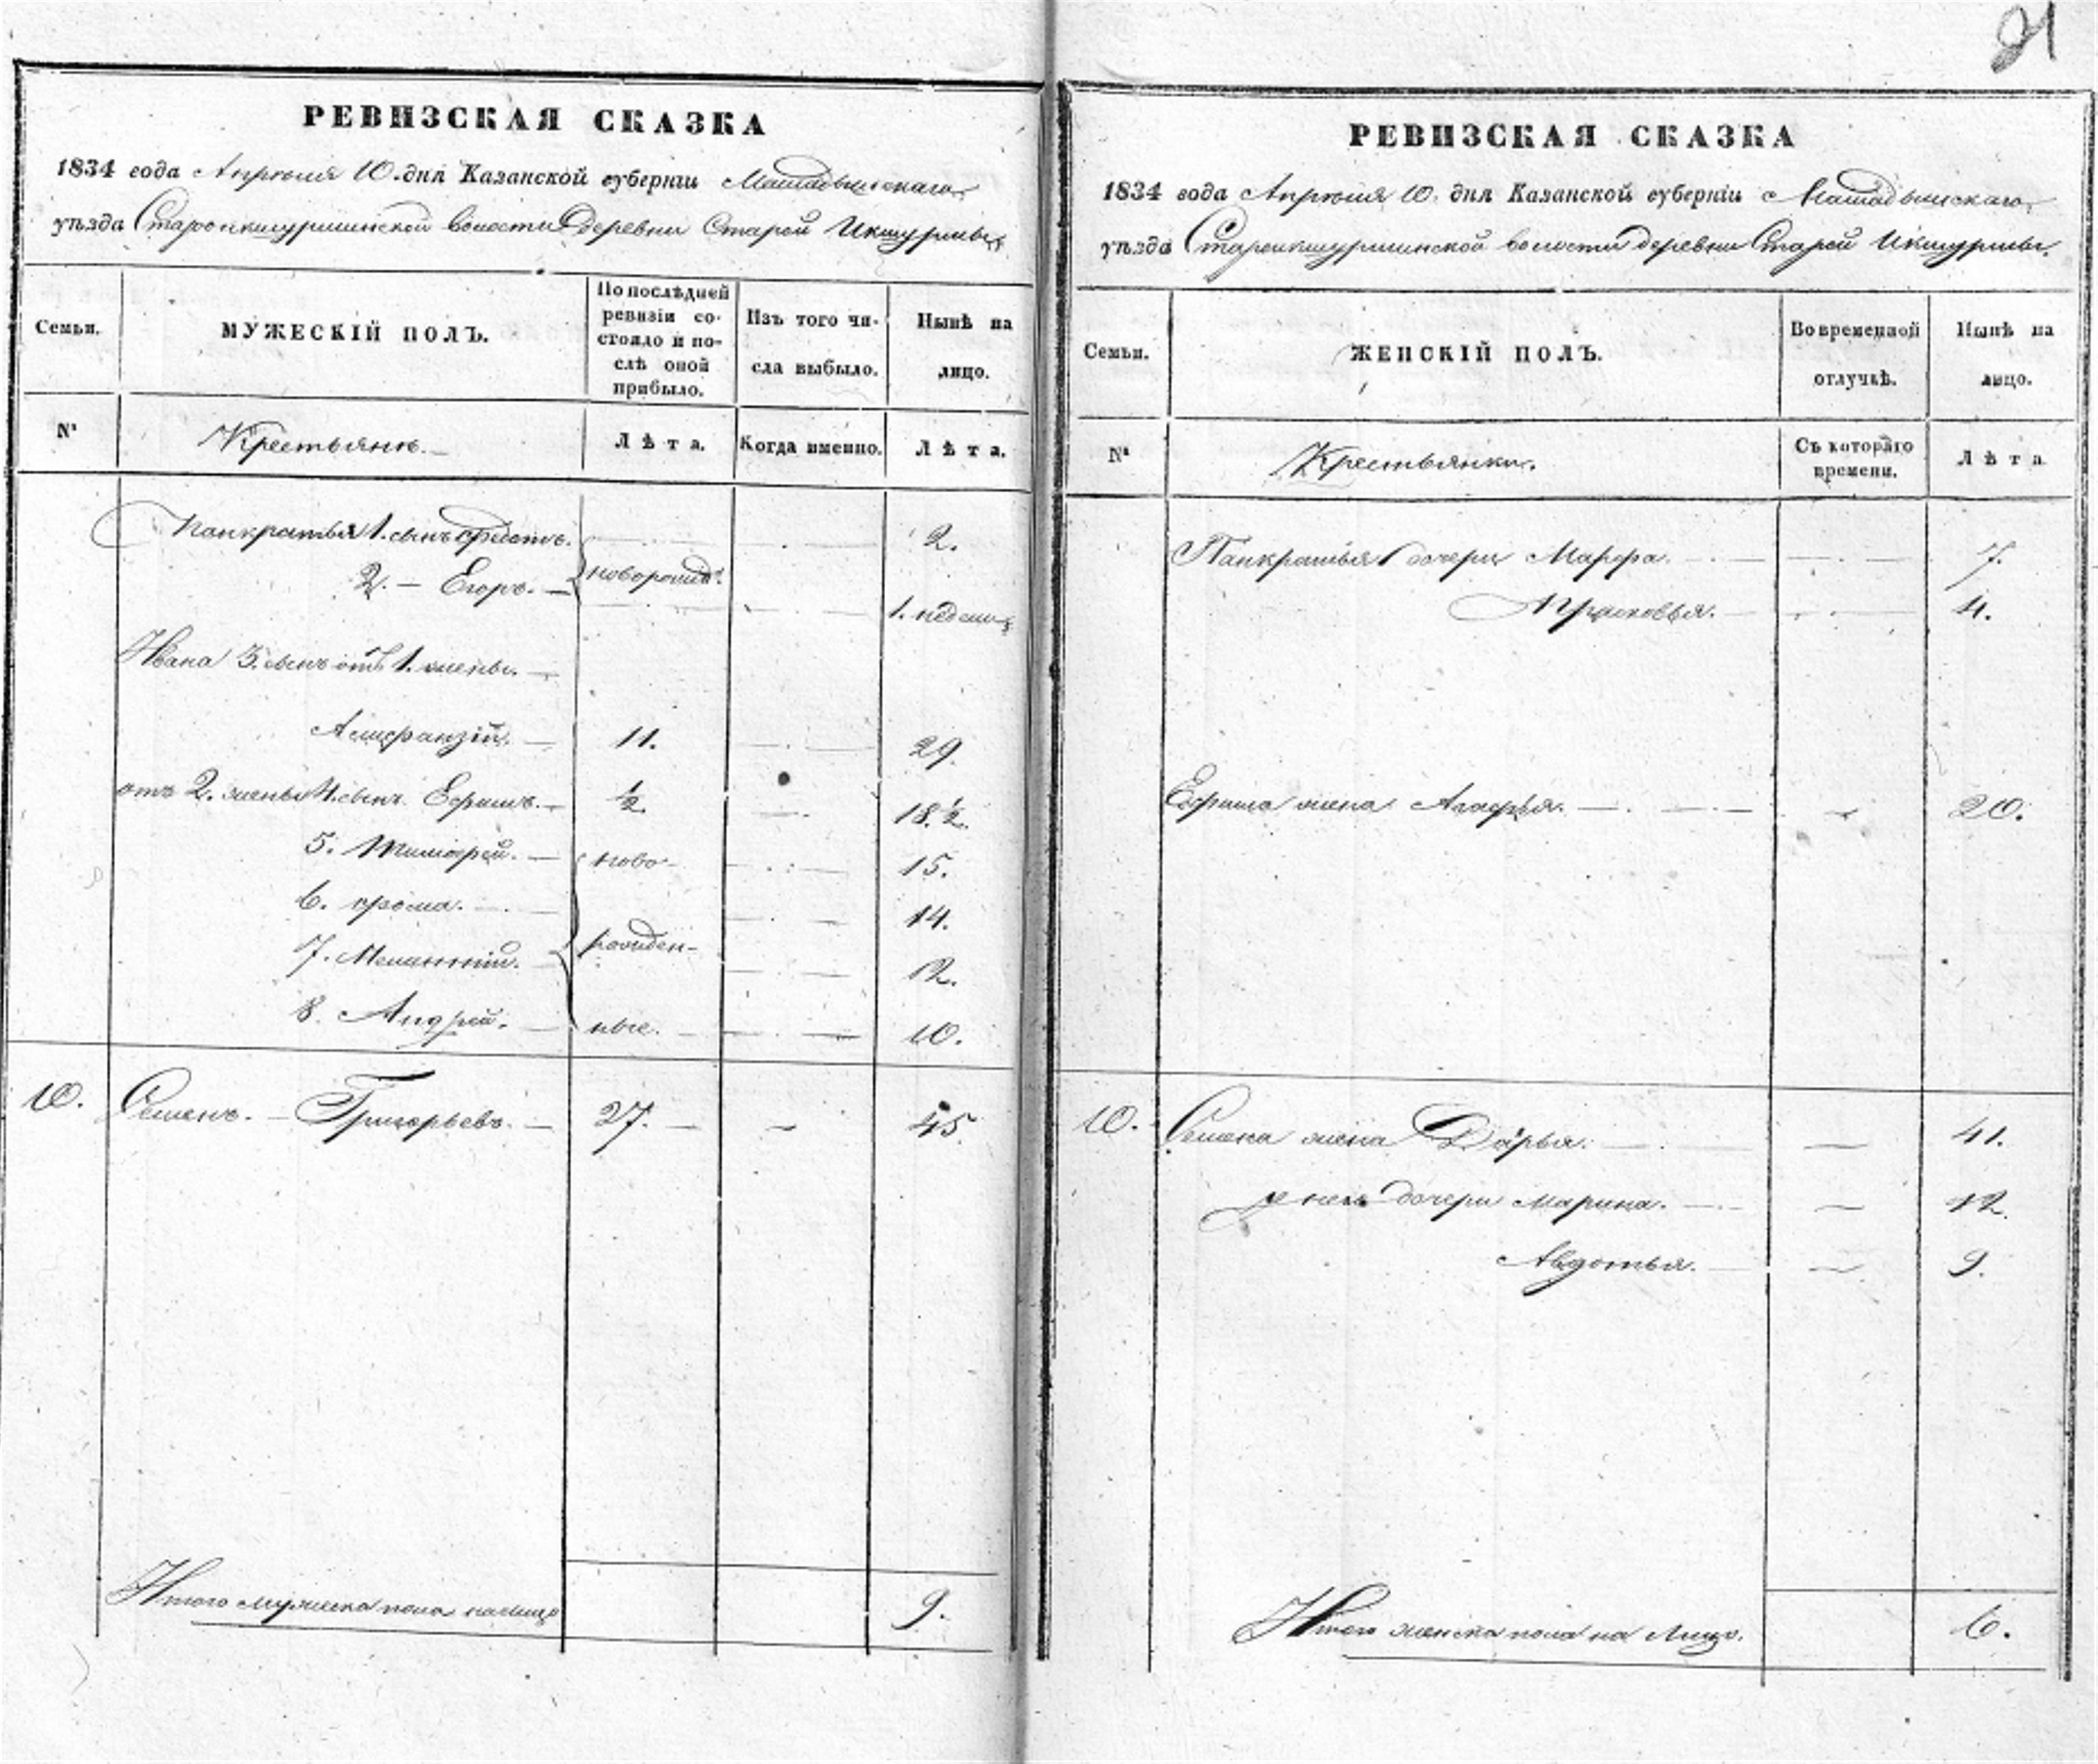 21
РЕВИЗСКАЯ СКАЗКА
1834 года Апрѣля 10. дня Казанской губерніи Мамадышскаго
уѣзда Староикшурминской волости деревни Старой Икшурмы
Семьи.
МУЖЕСКІЙ ПОЛЪ.
По послѣдней ревизіи состояло и послѣ оной прибыло.
Изъ того числа выбыло.
Нынѣ на лицо.
№
Крестьяне.
Лѣта.
Когда именно.
Лѣта.
Панкратья 1. сынъ Федотъ. 2.
2. — Егоръ. — новорожд. 1. недели
Ивана 3. сынъ отъ 1. жены. —
— 11. 29.
отъ 2. жены 4. сынъ Ефимъ. — 1/2. 18. 1/2.
5. Тимофей. — ново- 15.
6. Фома. — 14.
7. — рожден- 12.
8. Андрей. — ные. — 10.
10. Семенъ. — Григорьевъ. — 27. — — 45.
Итого мужеска пола налицо 9.
РЕВИЗСКАЯ СКАЗКА
1834 года Апрѣля 10. дня Казанской губерніи Мамадышскаго
уѣзда Староикшурминской волости деревни Старой Икшурмы.
Семьи.
ЖЕНСКІЙ ПОЛЪ.
Во временной отлучкѣ.
Нынѣ на лицо.
№
Крестьянки.
Съ котораго времени.
Лѣта
Панкратья дочери Марфа. — 7.
Прасковья. — 4.
Ефима жена Агафья. — 20.
10. Семена жена Дарья. — 41.
у нихъ дочери Марина. — 12.
Авдотья. — 9.
Итого женска пола на лицо. 6.